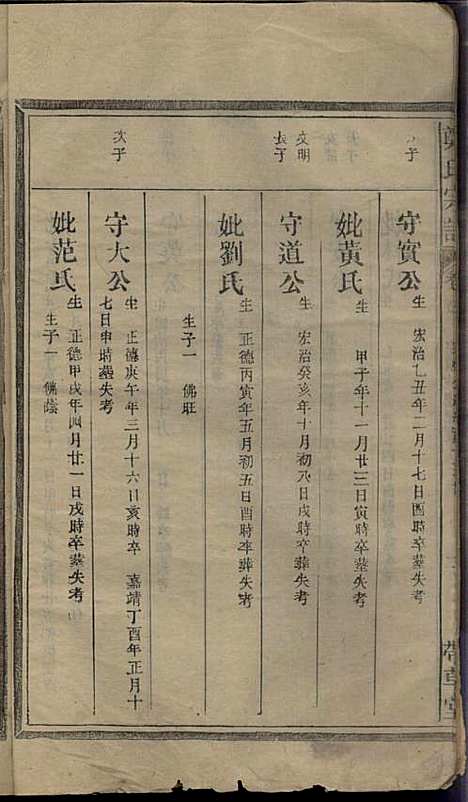 氏宗譜
次子
守實公
生 宏治乙丑年二月十七日酉時卒葬失考
妣黃氏
生 甲子年十一月廿三日寅時卒葬失考
文明
長子
守道公
生 宏治癸亥年十月初八日戌時卒葬失考
妣劉氏
生 正德丙寅年五月初五日酉時卒葬失考
生子一 佛旺
次子
守大公
生 正德庚午年三月十六日亥時卒 嘉靖丁酉年正月十
七日申時葬失考
妣范氏
生 正德甲戌年四月廿一日戌時卒葬失考
生子一 佛蔭